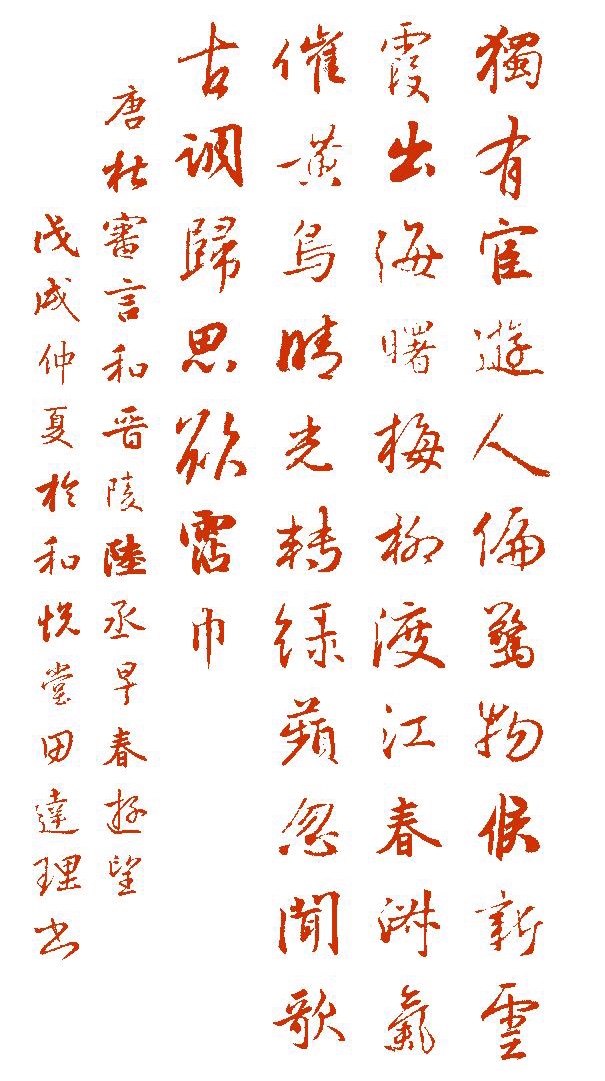 獨有宦遊人偏驚物候新雲
霞出海曙梅柳渡江春淑氣
催黄鳥晴光轉緑蘋忽聞歌
古調歸思欲霑巾
唐杜審言和晋陵陸丞早春遊望
戊戌仲夏於和悦堂田達理书